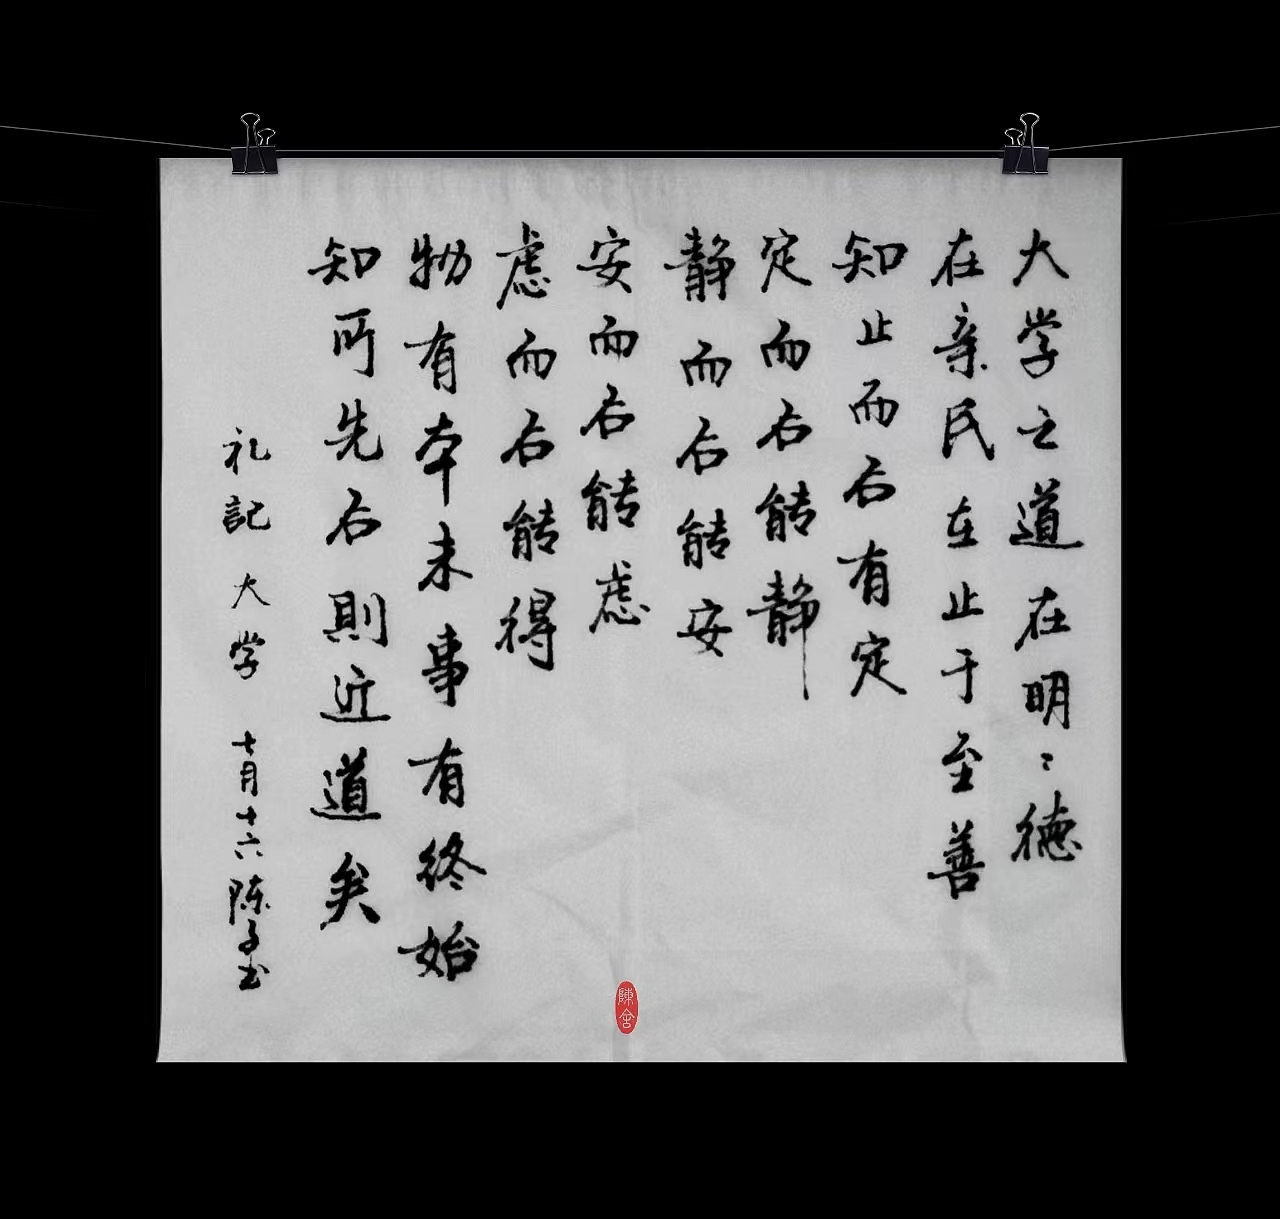 大学之道在明〻德
在亲民在止于至善
知止而后有定
定而后能静
静而后能安
安而后能虑
虑而后能得
物有本末事有终始
知所先后則近道矣
礼記大学 七月十六陈子书
陳舍